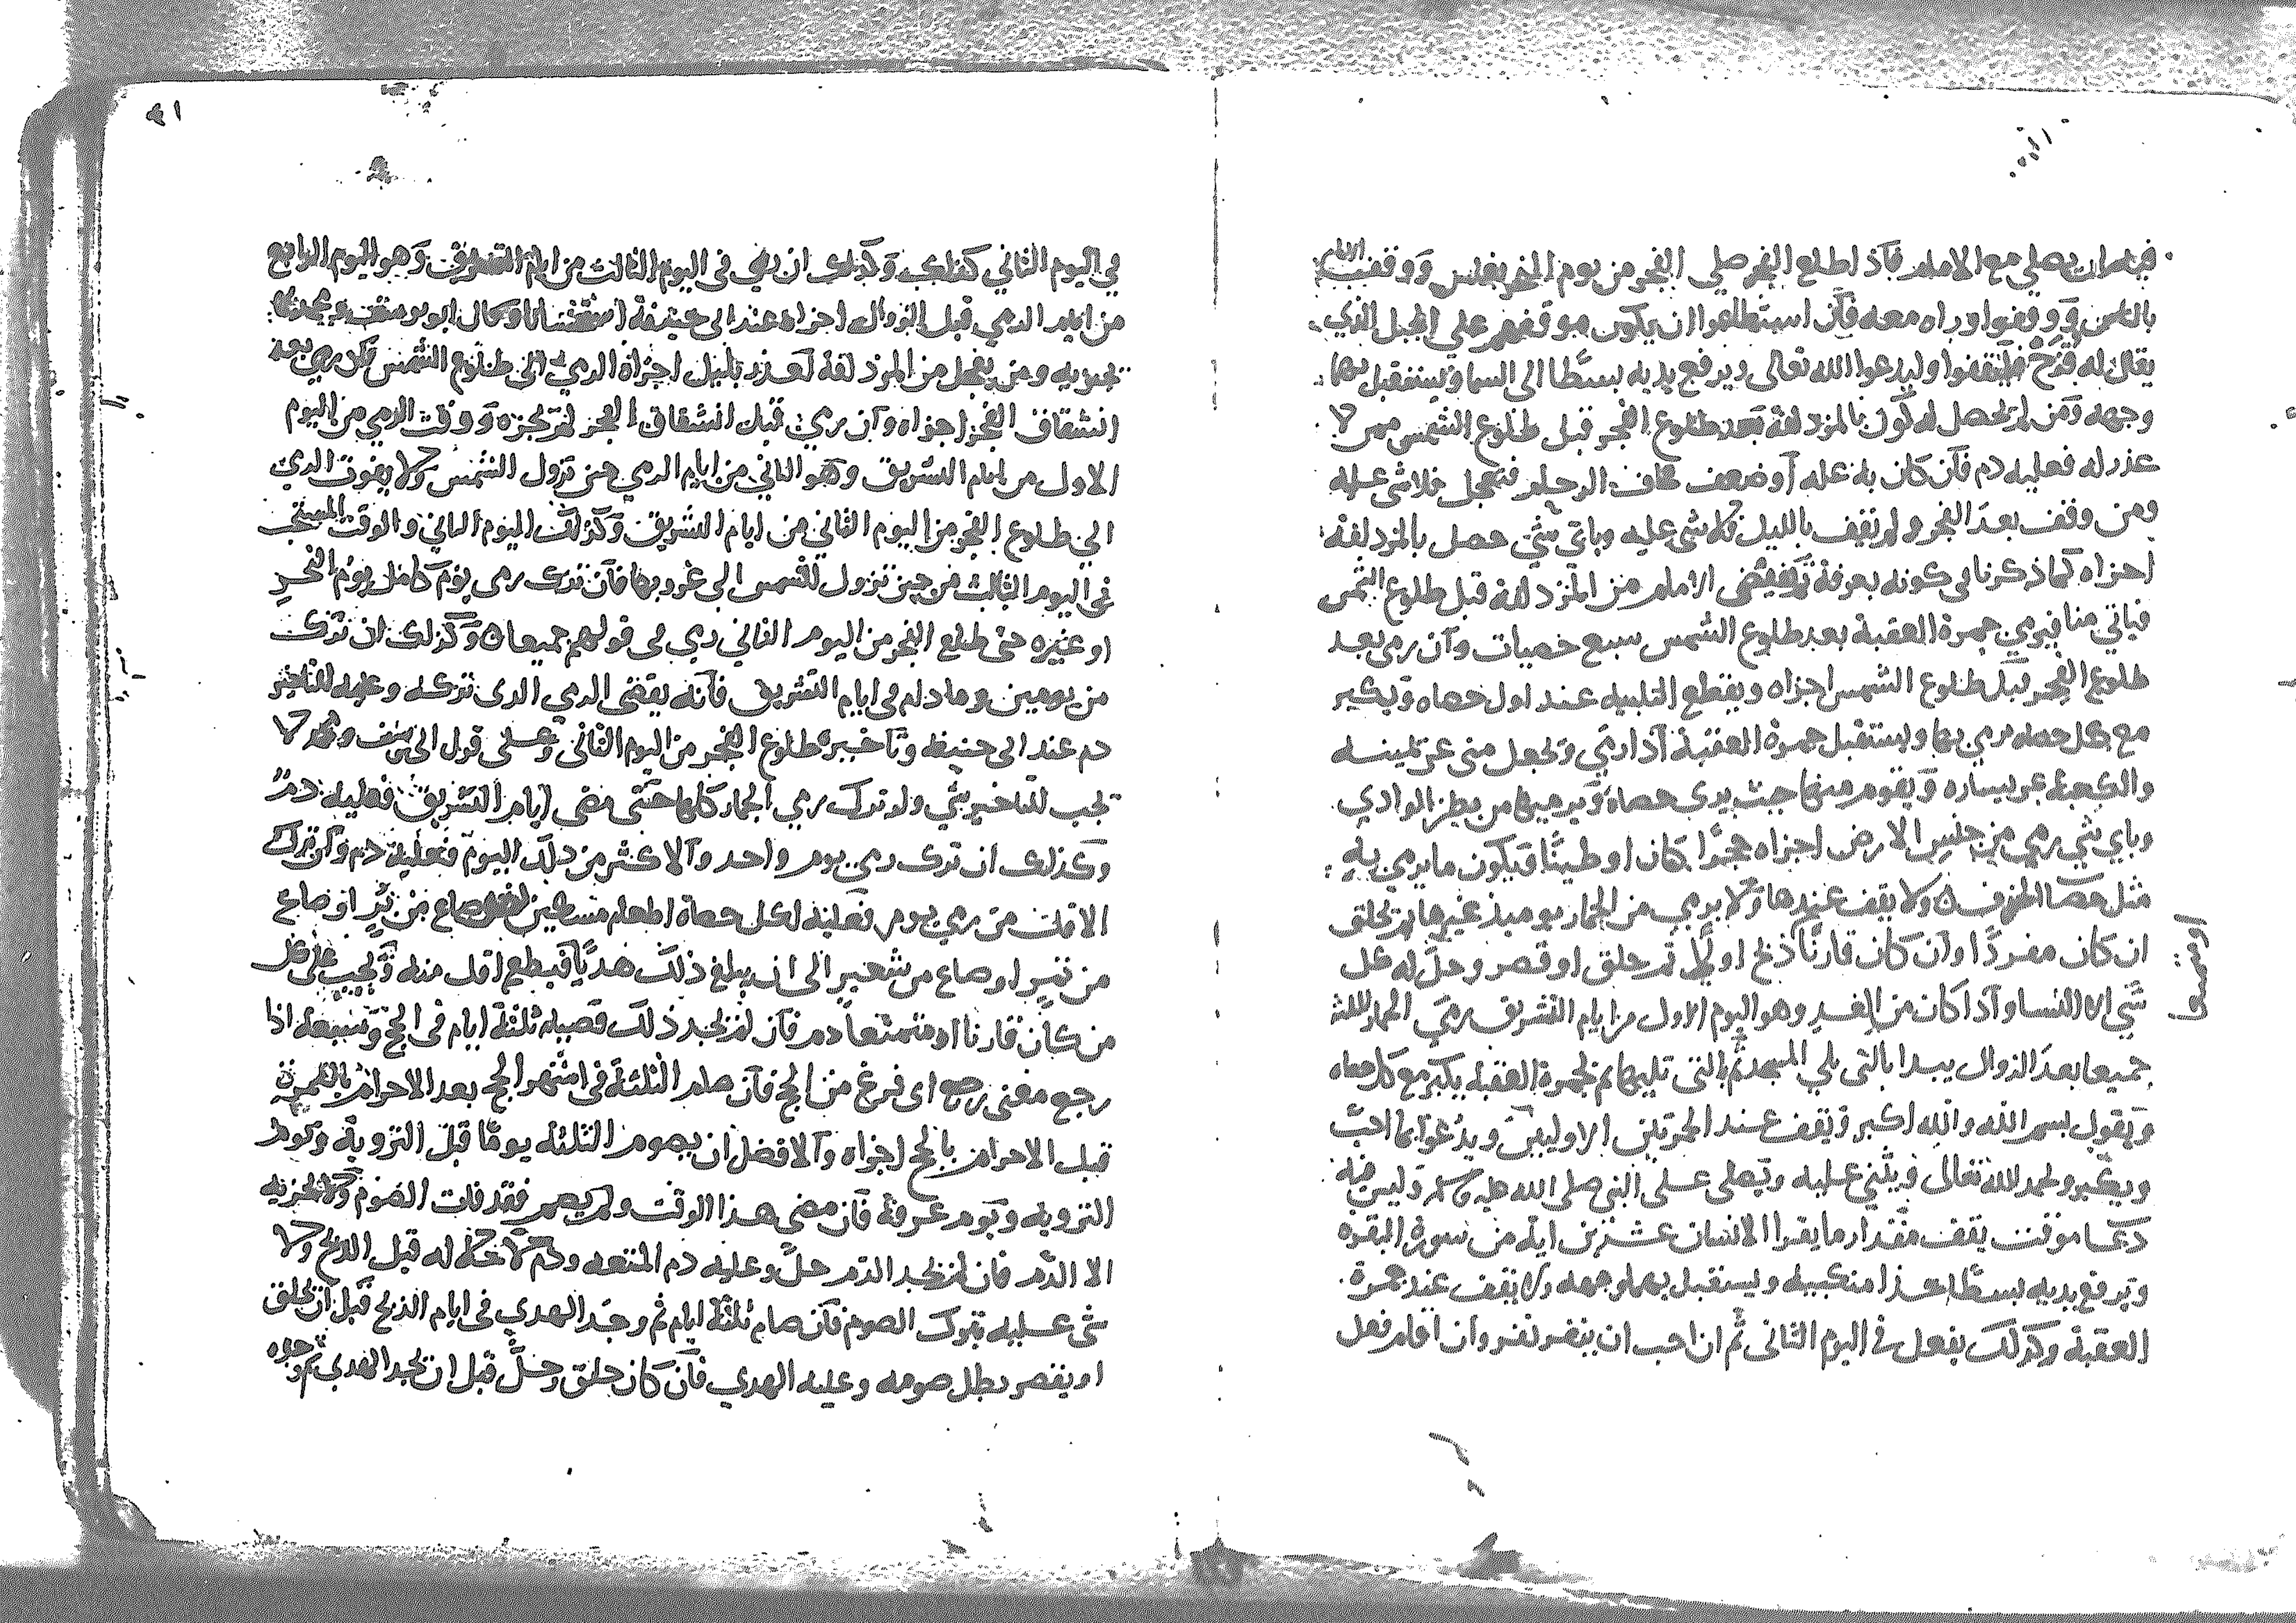 فيها ان يصلي مع الامام فاذا طلع الفجر صلى الفجر من يوم النحر بغلس ووقف الامام
بالناس ووقفوا وراه معه فان استطاعوا ان يكون موقفهم على الجبل الذي
يقال له قزح فليقفوا وليدعوا الله تعالى ويرفع يديه بسطا الى السما ويستقبل بهما
وجهه ومن لم يحصل له كون بالمزدلفة بعد طلوع الفجر قبل طلوع الشمس ممن لا
عذر له فعليه دم فان كان به علة او ضعف فخاف الزحام فتعجل فلا شى عليه
ومن وقف بعد الفجر ولم يقف بالليل فلا شى عليه وباي شي حصل بالمزدلفة
اجزاه كما ذكرنا في كونه بعرفة ثم يفيض الامام من المزدلفة قبل طلوع الشمس
فياتي منا فيرمي جمرة العقبة بعد طلوع الشمس سبع حصيات وان رمى بعد
طلوع الفجر قبل طلوع الشمس اجزاه ويقطع التلبيه عند اول حصاه ويكبر
مع كل حصاه يرمي بها ويستقبل جمرة العقبة اذا رمي ويجعل منى عن يمينه
والكعبة عن يساره ويقوم منها حيث يرى حصاه ويرميها من بطن الوادي
وباي شي رمي من جنس الارض اجزاه حجرا كان او طينا ويكون ما يرمي به
مثل حصا الخزف ولا يقف عندها ولا يرمي من الجمار يوميذ غيرها ثم يحلق
او يقصر
ان كان مفردا وان كان قارنا ذبح اولا ثم حلق او قصر وحل له كل
شي الا النسا واذا كان من الغد وهو اليوم الاول من ايام التشريق رمي الجمار الثلث
جميعا بعد الزوال يبدا بالتى يلي المسجد ثم بالتى تليها ثم بجمرة العقبة يكبر مع كل حصاه
ويقول بسم الله والله اكبر ويقف عند الجمرتين الاوليين ويدعوا بما احب
ويكبر ويحمد الله تعالى ويثني عليه ويصلى على النبي صلى الله عليه وسلم وليس فيه
دعا موقت يقف مقدار ما يقرا الانسان عشرين اية من سورة البقره
ويرفع يديه بسطا حذا منكبيه ويستقبل بهما وجهه ولا يقف عند جمرة
العقبة وكذلك يفعل في اليوم الثاني ثم ان احب ان ينفر نفر وان اقام فعل
٩١
في اليوم الثاني كذلك وكذلك ان رمي في اليوم الثالث من ايام التشريق وهو اليوم الرابع
من ايام الرمي قبل الزوال اجزاه عند ابي حنيفة استحسانا وقال ابو يوسف ومحمد لا
يجزيه ومن يعجل من المزدلفة لعذر بليل اجزاه الرمي الى طلوع الشمس فان رمي بعد
انشقاق الفجر اجزاه وان رمي قبل انشقاق الفجر لم يجزه ووقت الرمي من اليوم
الاول من ايام التشريق وهو الثاني من ايام الرمي حين تزول الشمس ولا يفوت الرمي
الى طلوع الفجر من اليوم الثاني من ايام التشريق وكذلك اليوم الثاني والوقت المستحب
في اليوم الثالث من حين تزول الشمس الى غروبها فان ترك رمي يوم كامل يوم النحر
او غيره حتى طلع الفجر من اليوم الثاني رمي في قولهم جميعا وكذلك ان ترك
من يومين وما دام في ايام التشريق فانه يقضي الرمي الذي تركه وعليه للتاخير
دم عند ابي حنيفة وتاخيره طلوع الفجر من اليوم الثاني وعلى قول ابي يوسف ومحمد لا
يجب للتاخير شي ولو ترك رمي الجمار كلها حتى مضى ايام التشريق فعليه دم
وكذلك ان ترك رمي يوم واحد والاكثر من ذلك اليوم فعليه دم وان ترك
الاقل من رمي يوم فعليه لكل حصاة اطعام مسكين نصف صاع من بر او صاع
من تمر او صاع من شعير الى ان يبلغ ذلك هديا فيطعم اقل منه ويجب على كل
من كان قارنا او متمتعا دم فان لم يجد ذلك فصيام ثلثة ايام في الحج وسبعة اذا
رجع معنى رجع اى فرغ من الحج فان صام الثلثة في اشهر الحج بعد الاحرام بالعمرة
قبل الاحرام بالحج اجزاه والافضل ان يصوم الثلثة يوما قبل التروية ويوم
التروية ويوم عرفة فان مضى هذا الوقت ولم يصم فقد فات الصوم ولا يجزيه
الا الدم فان لم يجد الدم حل وعليه دم المتعه ودم لاحلاله قبل الذبح ولا
شى عليه بترك الصوم فان صام ثلثة ايام ثم وجد الهدي في ايام الذبح قبل ان يحلق
او يقصر بطل صومه وعليه الهدي فان كان حلق وحل قبل ان يجد الهدي ثم وجده